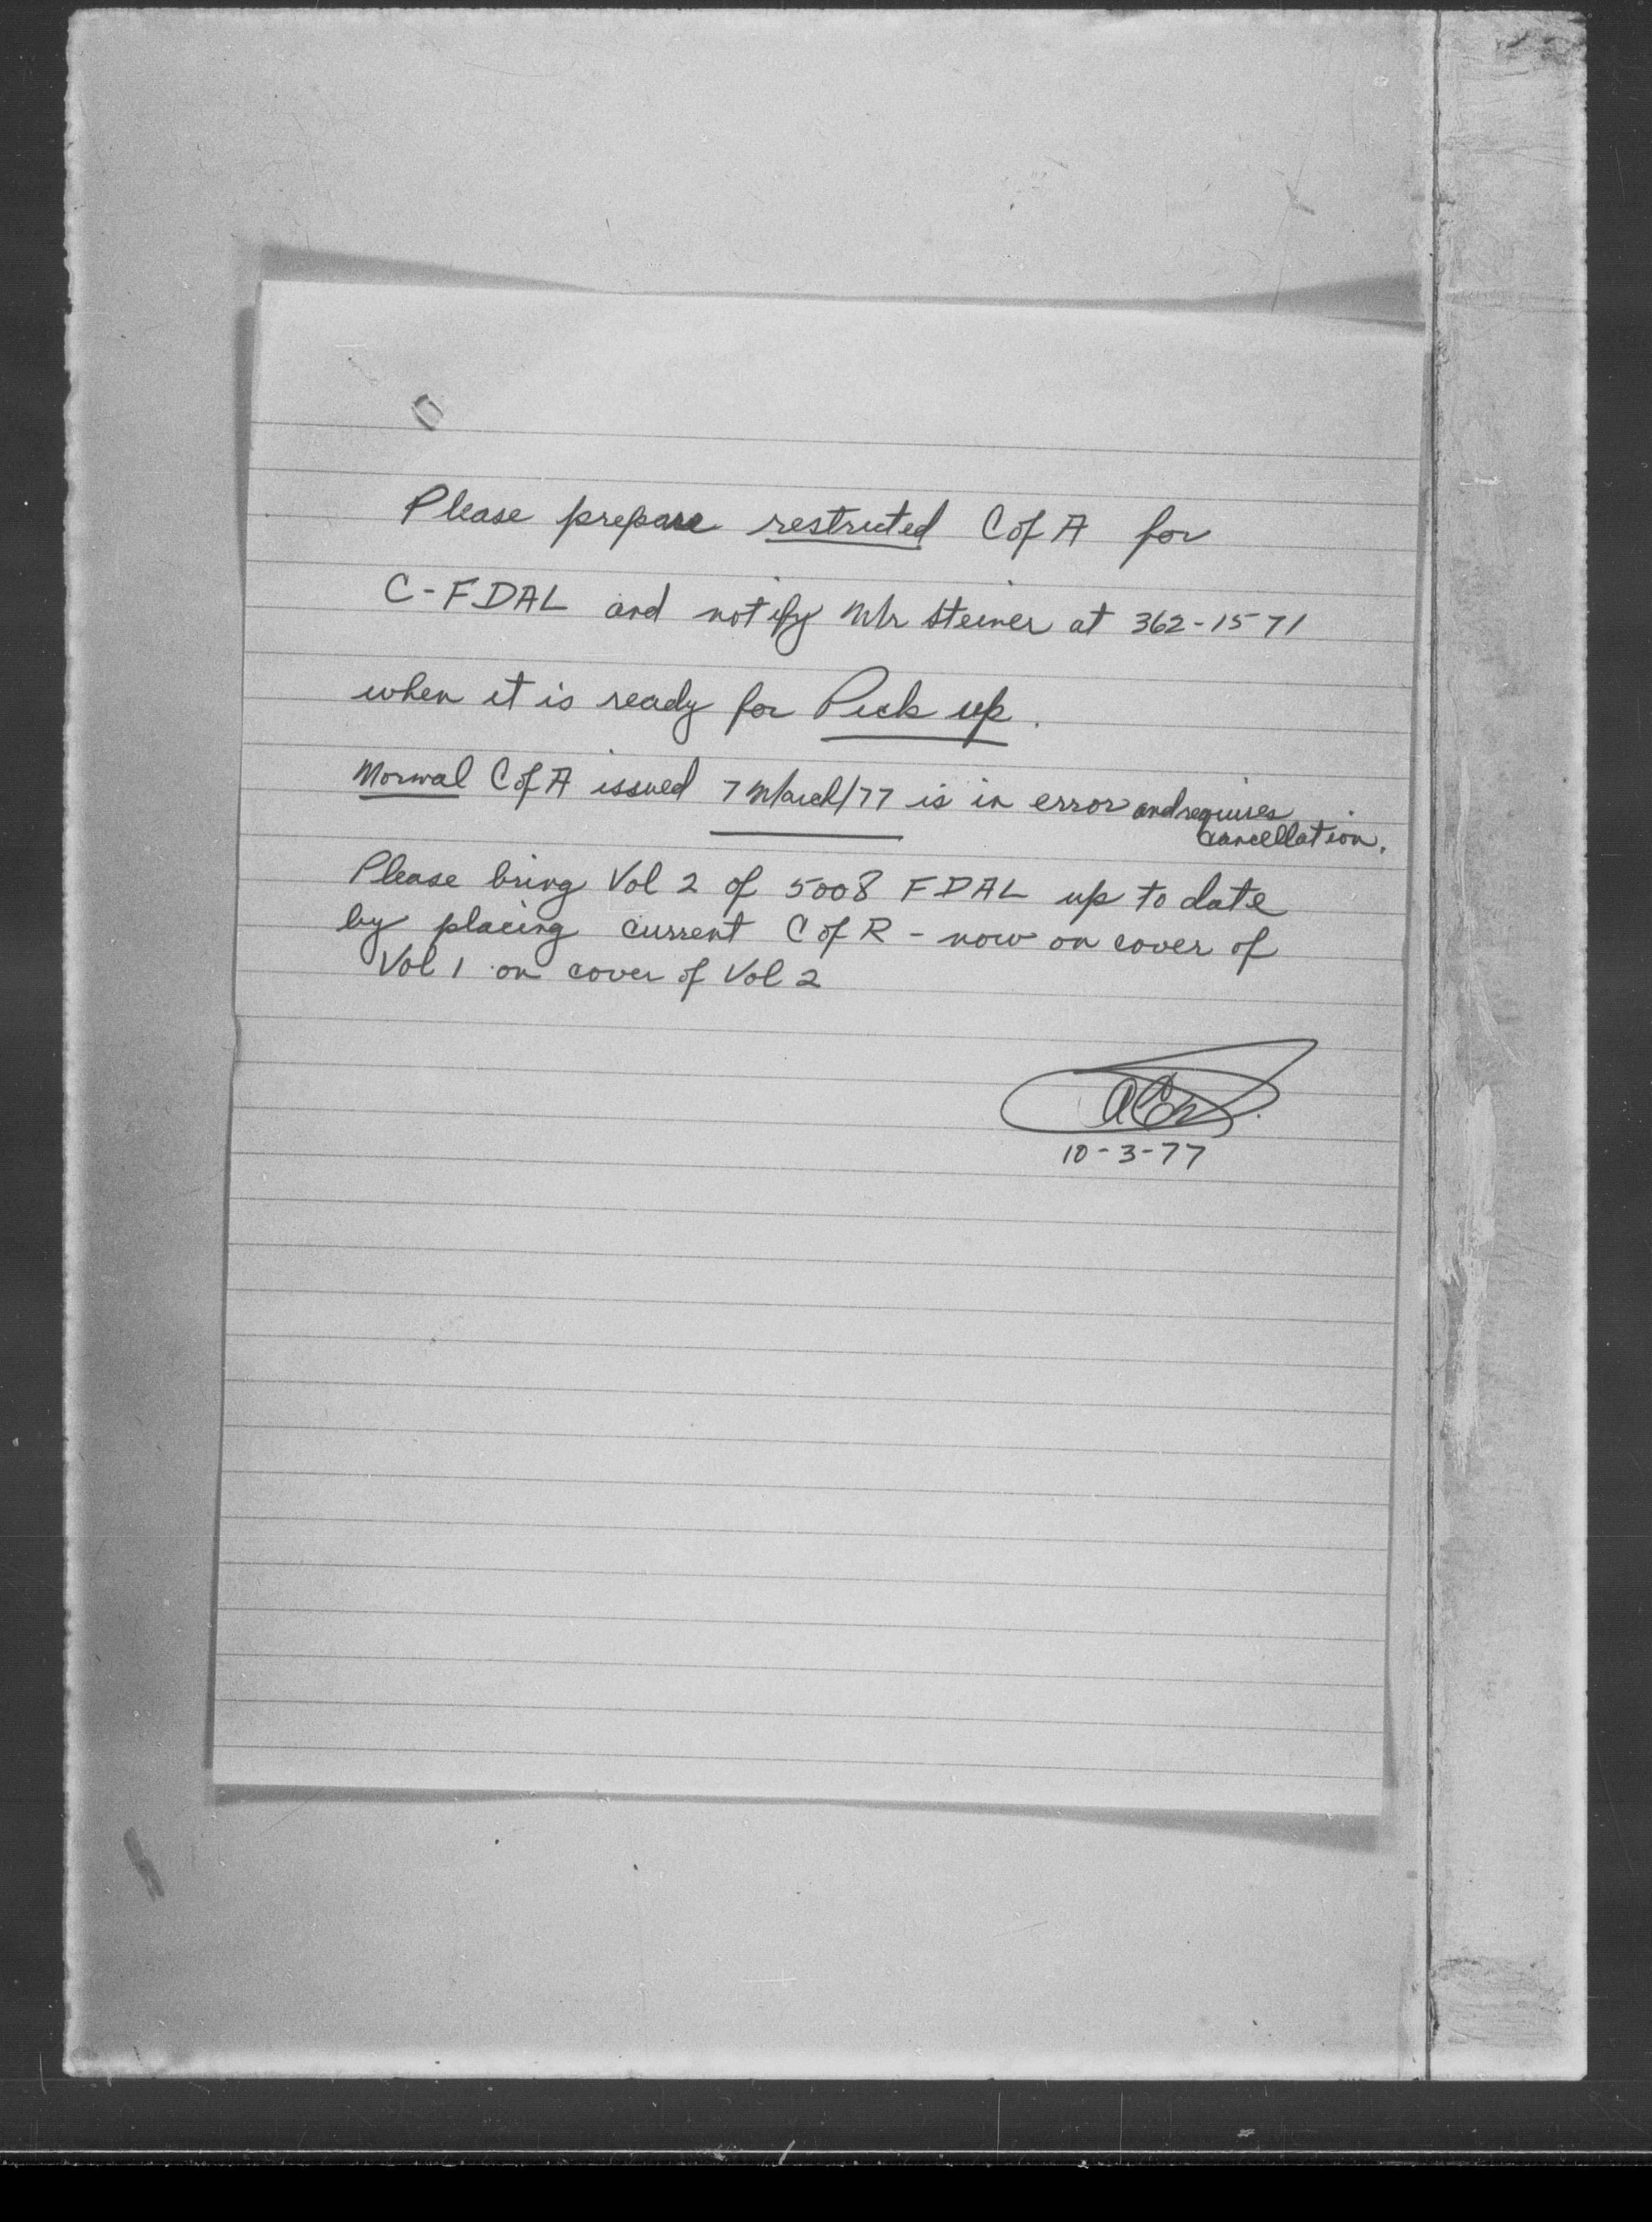 Please prepare restricted C of A for
C-FDAL and notify Mr Steiner at 362-1571
when it is ready for Pick up.
Normal C of A issued 7 March/77 is in error and requires
cancellation.
Please bring Vol 2 of 5008 FDAL up to date
by placing current C of R - now on cover of
Vol 1 on cover of Vol 2
10-3-77